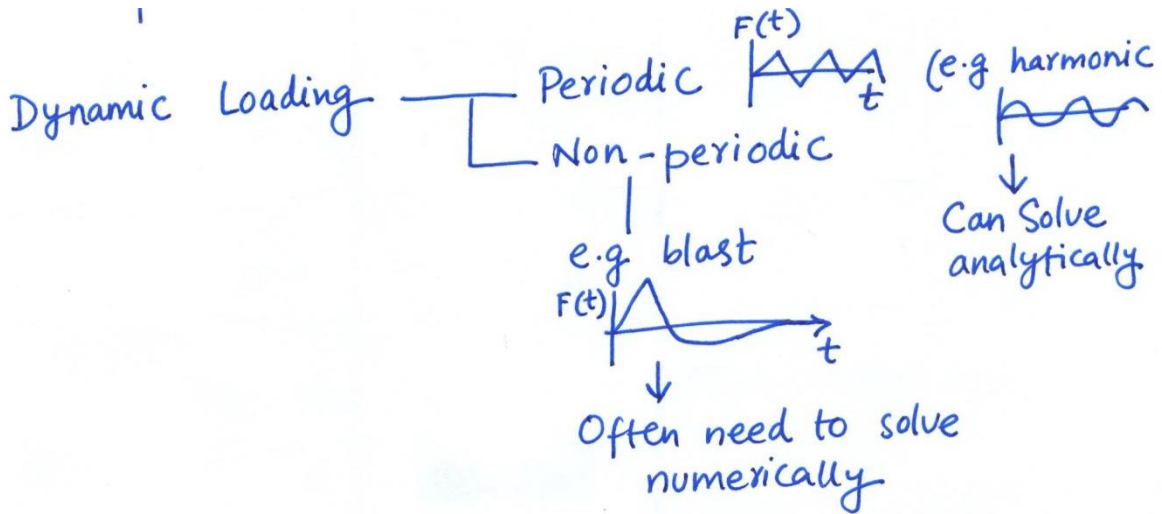 Dynamic Loading
Periodic
F(t)
t
(e.g harmonic
Can Solve
analytically
Non-periodic
e.g blast
F(t)
t
Often need to solve
numerically